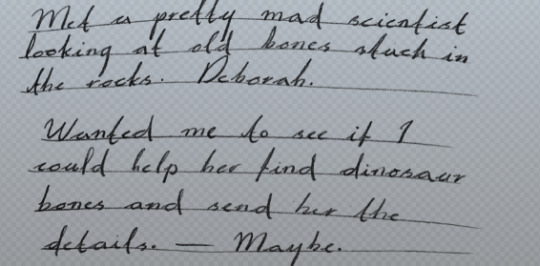 Met a pretty mad scientist
looking at old bones stuck in
the rocks. Deborah.
Wanted me to see if I
could help her find dinosaur
bones and send her the
details. — Maybe.